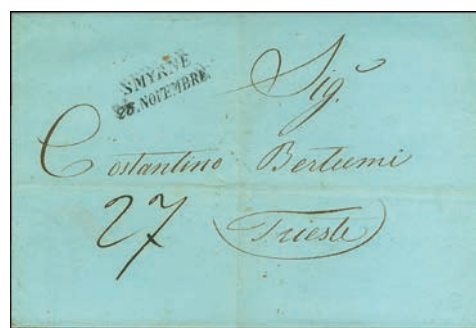 SMYRNE
25. NOVEMBRE.
Sig.r
Costantino Bertumi
27
Trieste